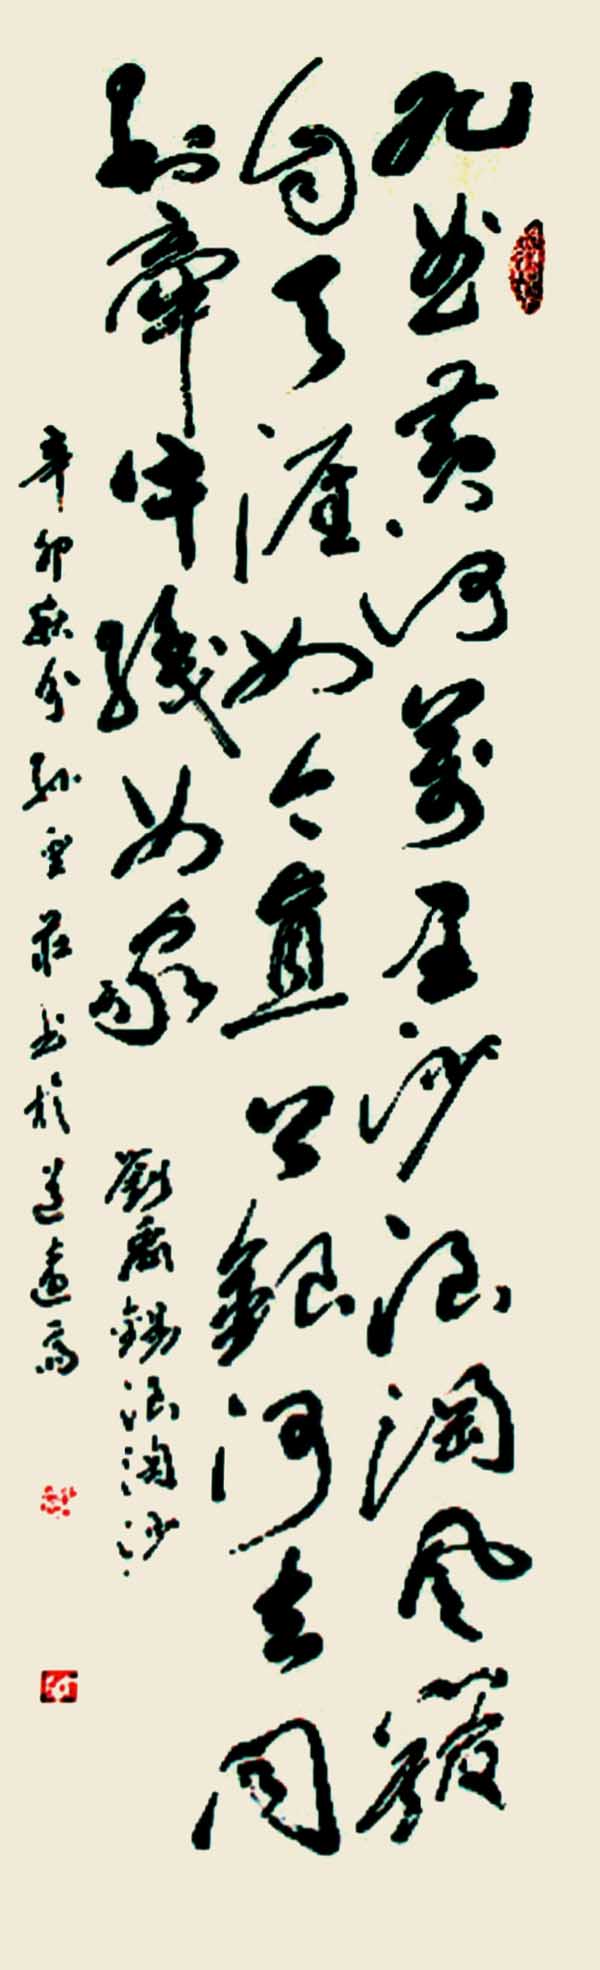 九曲黃河萬里沙浪淘風簸
自天涯如今直上銀河去同
到牽牛織女家
劉禹錫浪淘沙
辛卯秋分孙莊书於